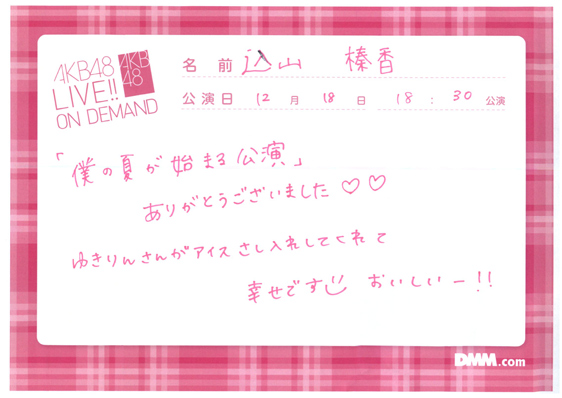 AKB48
LIVE!!
ON DEMAND
AKB
48
名前 込山 榛香
公演日 12月 18日 18:30 公演
「僕の夏が始まる公演」
ありがとうございました♡♡
ゆきりんさんがアイスさし入れしてくれて
幸せです おいしいー!!
DMM.com